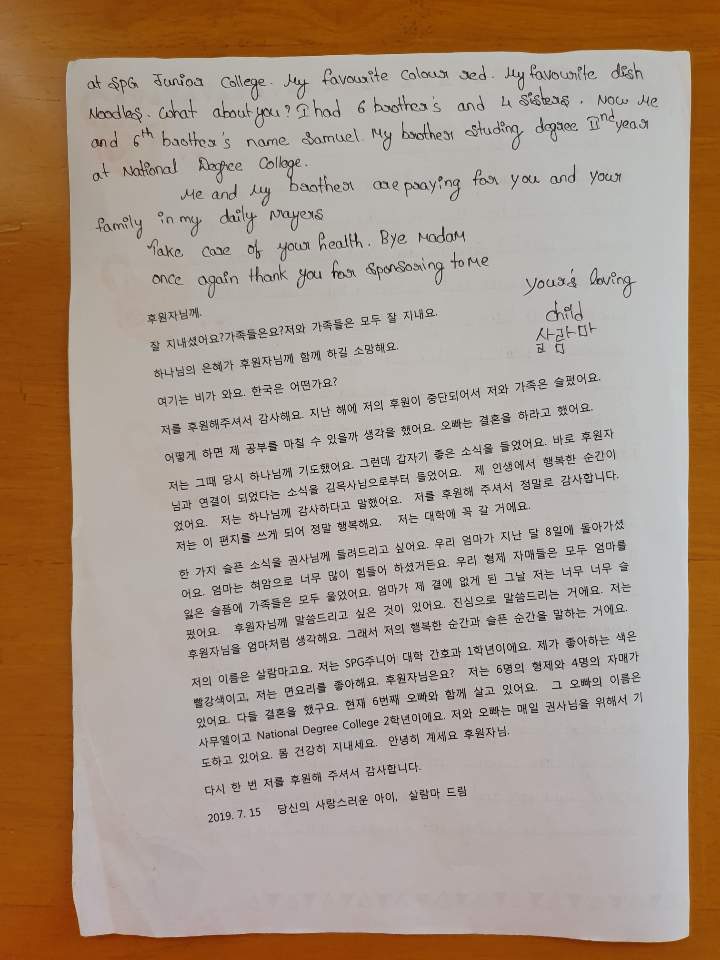 at SPG Junior College. My favourite colour red. My favourite dish
Noodles. What about you? I had 6 brother's and 4 sisters. Now Me
and 6th brother's name Samuel. My brother studing degree IInd year
at National Degree College.
Me and My brother are praying for you and your
family in my daily prayers
Take care of your health. Bye Madam
once again thank you for sponsoring to me
your's loving
child
살람마
후원자님께.
잘 지내셨어요?가족들은요?저와 가족들은 모두 잘 지내요.
하나님의 은혜가 후원자님께 함께 하길 소망해요.
여기는 비가 와요. 한국은 어떤가요?
저를 후원해주셔서 감사해요. 지난 해에 저의 후원이 중단되어서 저와 가족은 슬펐어요.
어떻게 하면 제 공부를 마칠 수 있을까 생각을 했어요. 오빠는 결혼을 하라고 했어요.
저는 그때 당시 하나님께 기도했어요. 그런데 갑자기 좋은 소식을 들었어요. 바로 후원자
님과 연결이 되었다는 소식을 김목사님으로부터 들었어요. 제 인생에서 행복한 순간이
었어요. 저는 하나님께 감사하다고 말했어요. 저를 후원해 주셔서 정말로 감사합니다.
저는 이 편지를 쓰게 되어 정말 행복해요. 저는 대학에 꼭 갈 거에요.
한 가지 슬픈 소식을 권사님께 들려드리고 싶어요. 우리 엄마가 지난 달 8일에 돌아가셨
어요. 엄마는 혀암으로 너무 많이 힘들어 하셨거든요. 우리 형제 자매들은 모두 엄마를
잃은 슬픔에 가족들은 모두 울었어요. 엄마가 제 곁에 없게 된 그날 저는 너무 너무 슬
펐어요. 후원자님께 말씀드리고 싶은 것이 있어요. 진심으로 말씀드리는 거에요. 저는
후원자님을 엄마처럼 생각해요. 그래서 저의 행복한 순간과 슬픈 순간을 말하는 거에요.
저의 이름은 살람마고요. 저는 SPG주니어 대학 간호과 1학년이에요. 제가 좋아하는 색은
빨강색이고, 저는 면요리를 좋아해요. 후원자님은요? 저는 6명의 형제와 4명의 자매가
있어요. 다들 결혼을 했구요. 현재 6번째 오빠와 함께 살고 있어요. 그 오빠의 이름은
사무엘이고 National Degree College 2학년이에요. 저와 오빠는 매일 권사님을 위해서 기
도하고 있어요. 몸 건강히 지내세요. 안녕히 계세요 후원자님.
다시 한 번 저를 후원해 주셔서 감사합니다.
2019. 7. 15 당신의 사랑스러운 아이, 살람마 드림